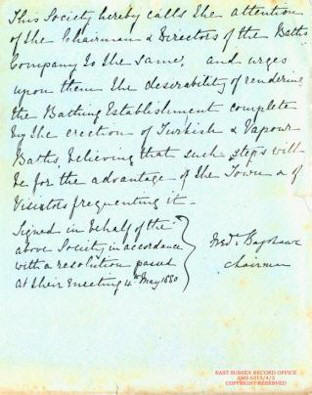 This Society hereby calls the attention
of the Chairman & Directors of the Baths
Company to the same, and urges
upon them the desirability of rendering
the Bathing Establishment complete
by the erection of Turkish & Vapour
Baths, believing that such steps will
be for the advantage of the Town & of
Visitors frequenting it –
Signed in behalf of the
above Society in accordance
with a resolution passed
at their meeting 4th May 1880
Bagshawe
Chairman
EAST SUSSEX RECORD OFFICE
COPYRIGHT RESERVED